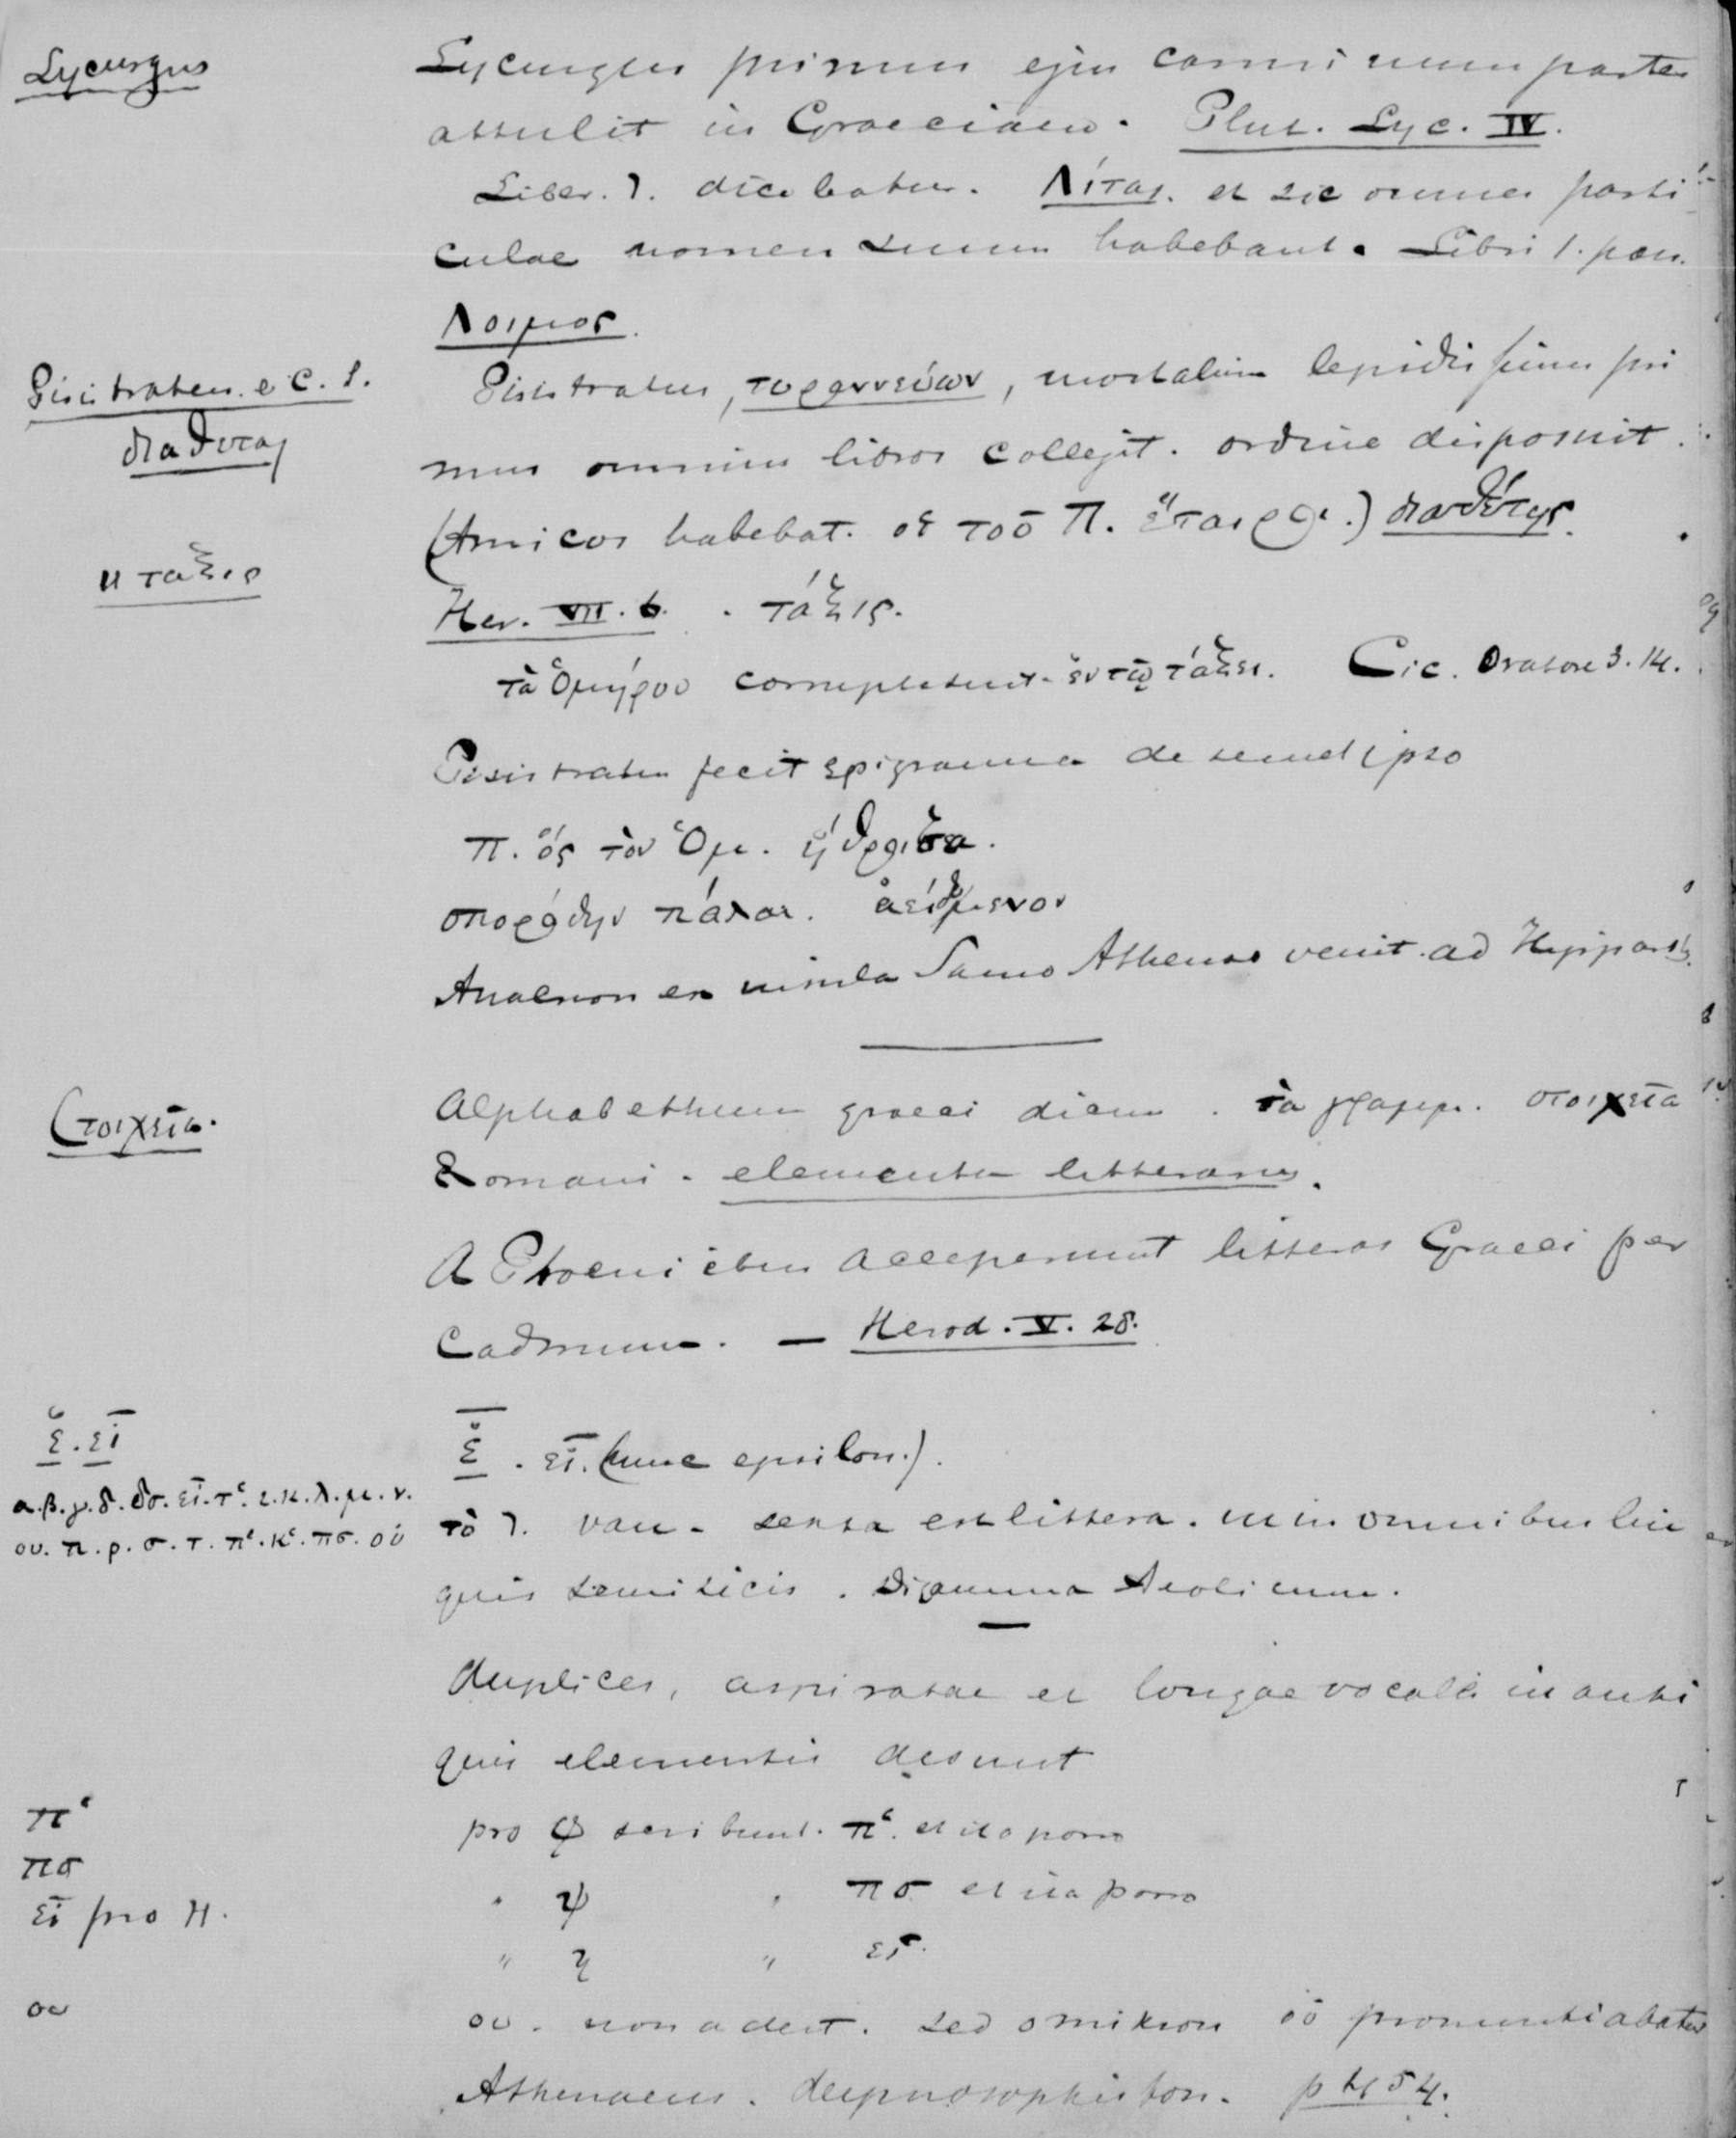 Lycurgus
Lycurgus primus ejus carminum partes
attulit in Graeciam. Plut. Lyc. IV.
Liber. 1. dicebatur. Λίται. et sic omnes parti
culae nomen suum habebant. Libri 1. pars.
Λοιμος.
Pisistratus. e C. 1.
διαθεται
Pisistratus, τυραννεύων, mortalium lepidissimus pri
mus omnium libros collegit. ordine disposuit.
(Amicos habebat. οἱ τοῦ Π. ἑταῖροι.) διαθέτης.
η ταξις
Her. VII. 6. τάξις.
τὰ Ὁμήρου corrupta sunt. ἐν τῷ τάξει. Cic. Oratore 3. 14.
Pisistratus fecit epigramma de semet ipso
Π. ὅς τὸν Ὁμ. ἤθροισα.
σποράδην πάλαι. ἀειδόμενον
Anacreon ex insula Samo Athenas venit. ad Hipparch.
Στοιχεῖα.
Alphabethum graeci dicunt. τὰ γραμμ. στοιχεῖα
Romani. elementa litterarum.
A Phoenicibus acceperunt litteras Graeci per
Cadmum. — Herod. V. 28.
ε. ει
ε. ει. (nunc epsilon.).
α. β. γ. δ. δσ. ει. τʿ. ι. κ. λ. μ. ν.
ου. π. ρ. σ. τ. πʿ. κʿ. πσ. οὐ
τὸ ו. vau. sexta est littera. ut in omnibus lin
guis semiticis. Digamma Aeolicum.
Duplices, aspiratae et longae vocales in anti
quis elementis desunt
πʿ
pro φ scribunt. πʿ. et ita porro
πσ
" ψ " πσ et ita porro
ει pro H.
" η " ει.
ου
ου. non adest. sed omikron οὐ pronuntiabatur
Athenaeus. deipnosophiston. p 454.